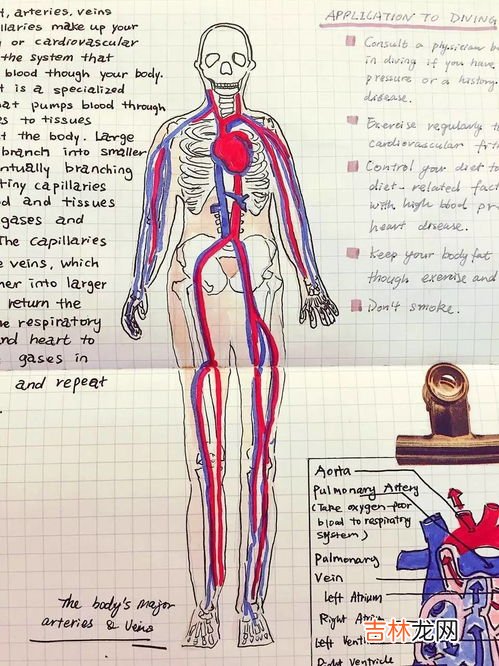 , arteries, veins
llaries make up your
or cardiovascular
the system that
blood though your body.
t is a specialized
hat pumps blood through
es to tissues
t the body. Large
branch into smaller
entually branching
tiny capillaries
d and tissues
gases and
The capillaries
e veins, which
her into larger
return the
e respiratory
nd heart to
gases in
and repeat
The body's major
arteries & Veins
APPLICATION TO DIVING
Consult a physician b
in diving if you have
pressure or a history
disease.
Exercise regularly t
cardiovascular fit
Control your diet to
diet-related fact
with high blood pre
heart disease.
Keep your body fat
though exercise and
Don't smoke.
Aorta
Pulmonary Artery
(Take oxygen-poor
blood to respiratory
system)
Pulmonary
Vein
Left Atrium
Right Atriu
Left Ventri
Right Ventricle
吉林龙网